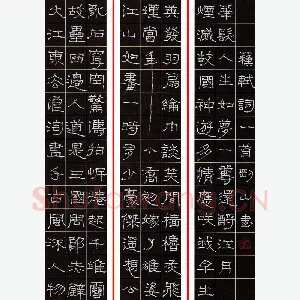 大江東去浪淘盡千古風流人物
故壘西邊人道是三國周郎赤壁
亂石穿空驚濤拍岸捲起千堆雪
江山如畫一時多少豪傑遙想公
瑾當年小喬初嫁了雄姿
英發羽扇綸巾談笑間檣櫓灰飛
煙滅故國神遊多情應笑我早生
華髮人生如夢一尊還酹江月
蘇軾詞一首 山書